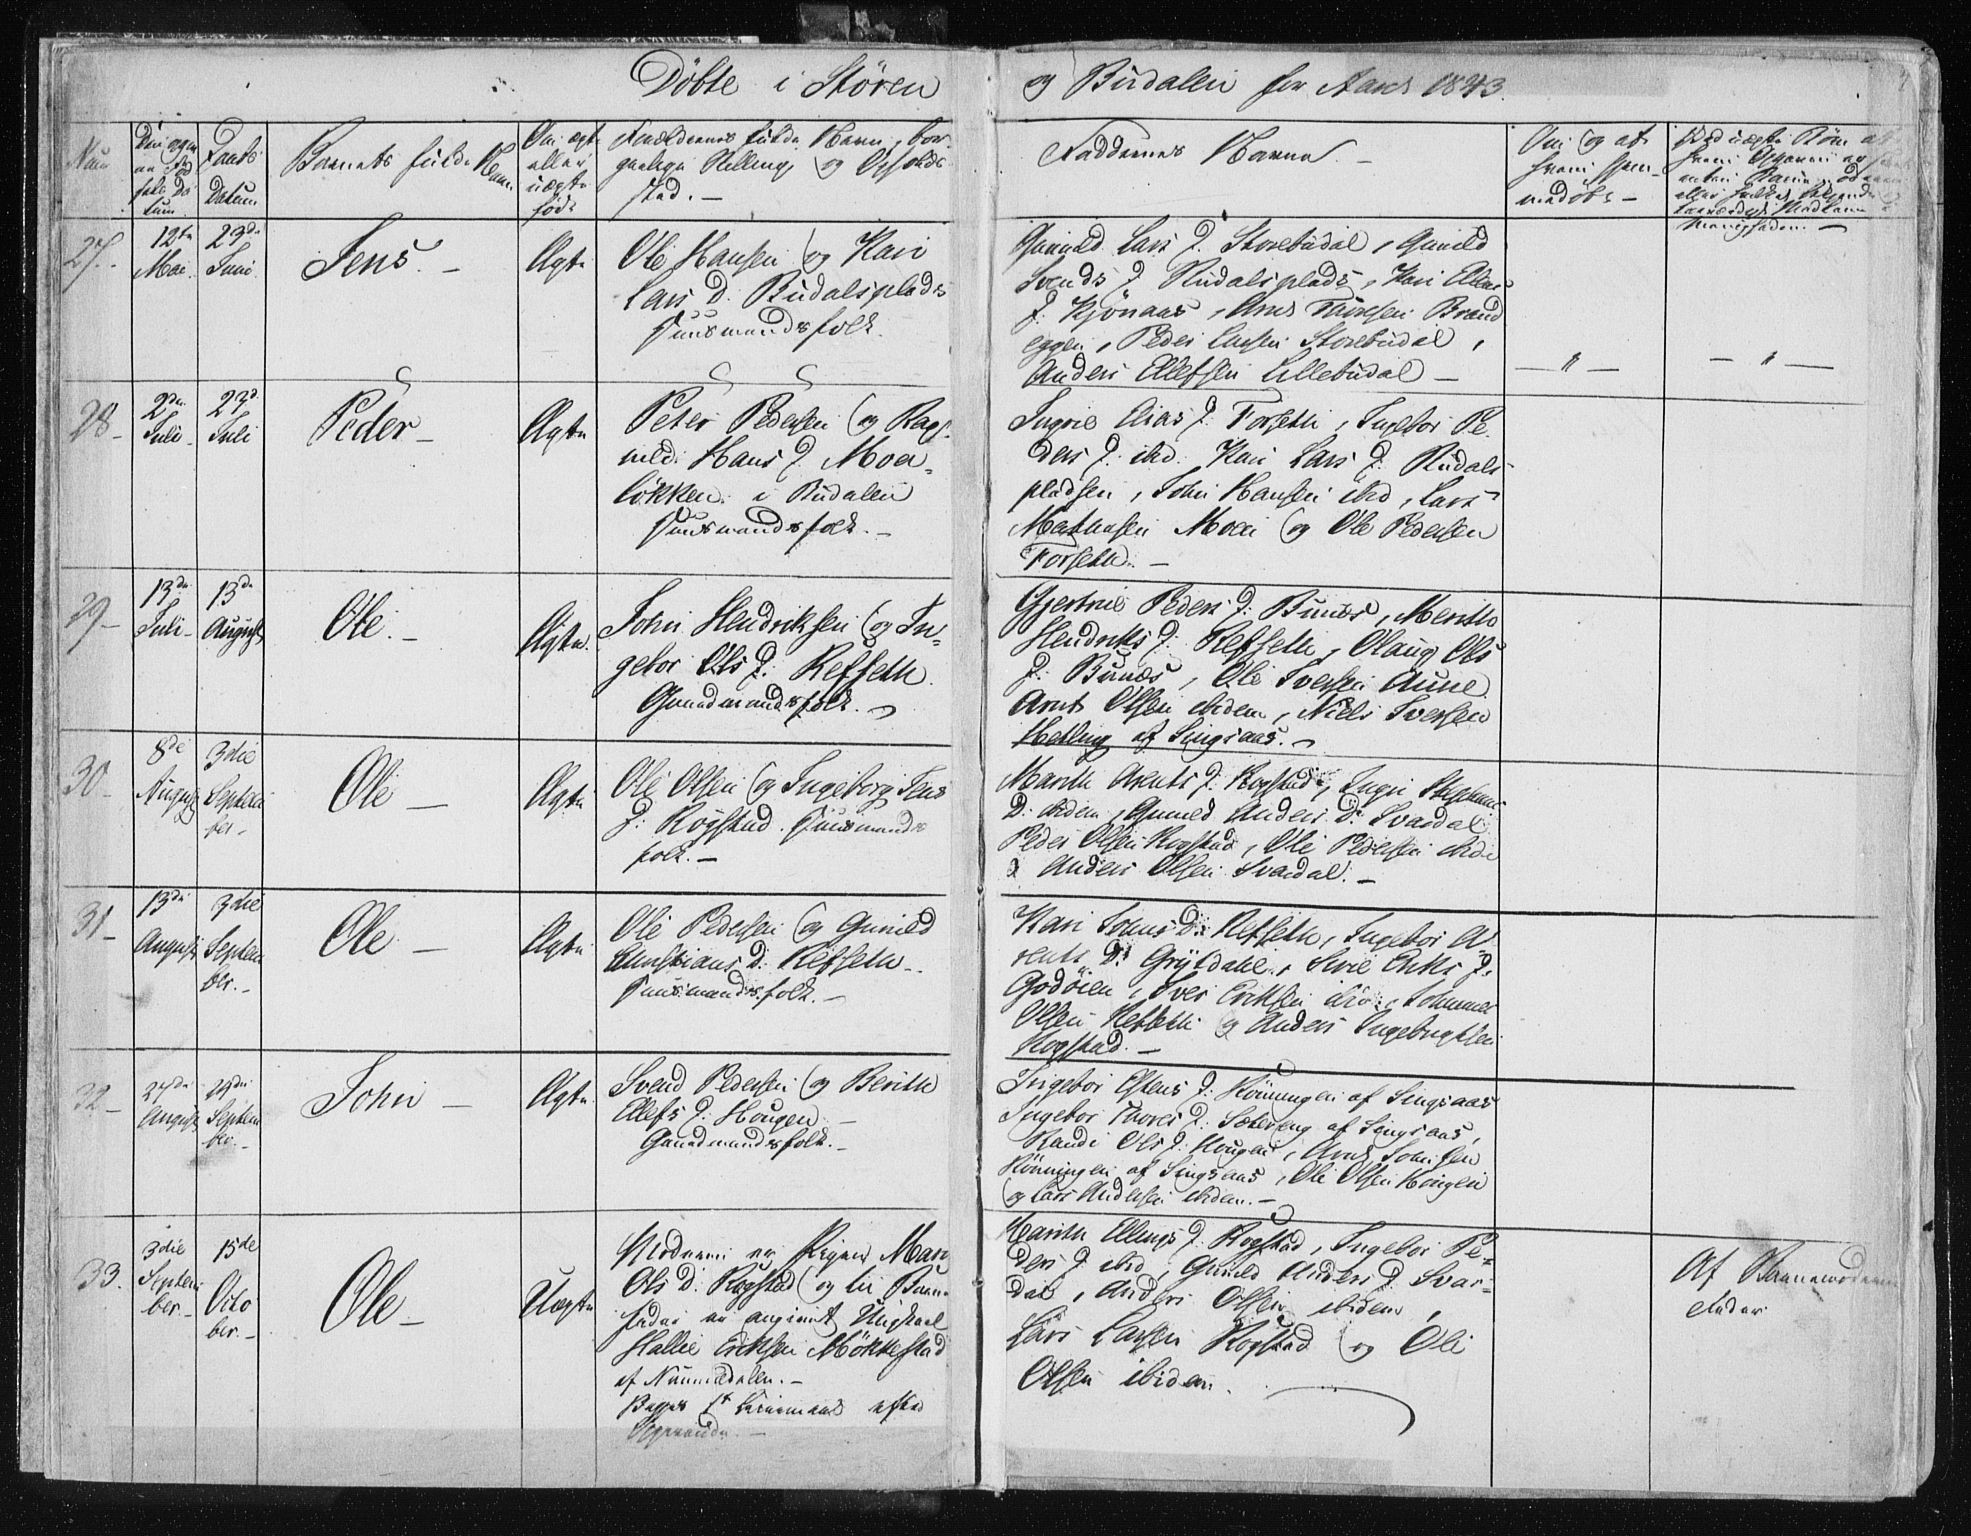 Döbte i Stören og Budalen for Aaret 1843.
Barnets fulde Navn
Om ægte eller uægte födt
Forældrenes fulde Navn, borgerlige Stilling og Opholdssted. -
Faddernes Navne. -
27. -
12te Mai.
23de Juni.
Jens. -
Ægte
Ole Hansen og Kari
Lars D. Budalsplads
Huusmandsfolk.
Gunild Lars D. Storebudal, Gunild
Svends D. Budalsplads, Kari Ellevs
D. Kjönaas, Arnt Thoresen Brand
eggen, Peder Larsen Storebudal,
Anders Ellefsen Lillebudal -
— " —
— " —
28 -
2den Juli -
23d Juli
Peder -
Ægte
Peter Pedersen og Rag-
nild Hans D. Moe-
lökken i Budalen
Huusmandsfolk. -
Ingrie Elias D. Forseth, Ingebor Pe-
ders D. ibid. Kari Lars D. Budals-
pladsen, John Hansen ibid, Lars
Mathusen Moen og Ole Pedersen
Forseth. -
29 -
13de Juli -
13de August
Ole. -
Ægte.
John Hendriksen og In-
gebor Ols D. Refseth.
Gaardmandsfolk. -
Gjertrue Peders D. Bunæs, Merith
Hendriks D. Refseth, Olaug Ols
D. Bunæs, Ole Iversen Aune
Arnt Olsen ibidem, Niels Iversen
Hetling af Singsaas. -
30 -
8de August
3die Septem
ber. -
Ole -
Ægte
Ole Olsen og Ingeborg Jens
D. Rogstad. Huusmands
folk. -
Marith Arnts D. Rogstad, Ingri Stephens
D. ibidem, Gunild Anders D. Svardal
Peder Olsen Rogstad, Ole Pedersen ibide
& Anders Olsen Svardal. -
31 -
13de August
3die Septem
ber. -
Ole -
Ægte
Ole Pedersen og Gunild
Christians D. Refseth -
Huusmandsfolk. -
Kari Johns D. Refseth, Ingebor A-
rents D. Grytdahl, Sirie Eriks D.
Godöien, Iver Eriksen ibid.,
Olsen Refseth og Anders Ingebrigtsen
Rogstad. -
32 -
27de August
Septem
ber. -
John -
Ægte
Svend Pedersen og Berith
Ellefs D. Hougen -
Gaardmandsfolk. -
Ingebor Estens D. Rönningen af Singsaas
Ingebor Thores D. af Singsaas,
Randi Ols D. Hougen, Arnt Johnsen
Rönningen af Singsaas, Ole Olsen Hougen
og Lars Andersen ibidem. -
33.
3die Septem
ber. -
15de Octo
ber. -
Ole -
Uægte
Moderen er Pigen Mari
Ols D. Rogstad og til Barne
fader er angivet Michael
Hallie Eriksen Möklestad
af Nummedalen. -
Begges 1st Leiermaal efter
Opgivende. -
Marith Ellings D. Rogstad, Ingebor Pe-
ders D. ibid, Gunild Anders D. Svar-
dal, Anders Olsen ibidem,
Lars Larsen Rogstad og Ole
Olsen ibidem.
Af Barnemoderen